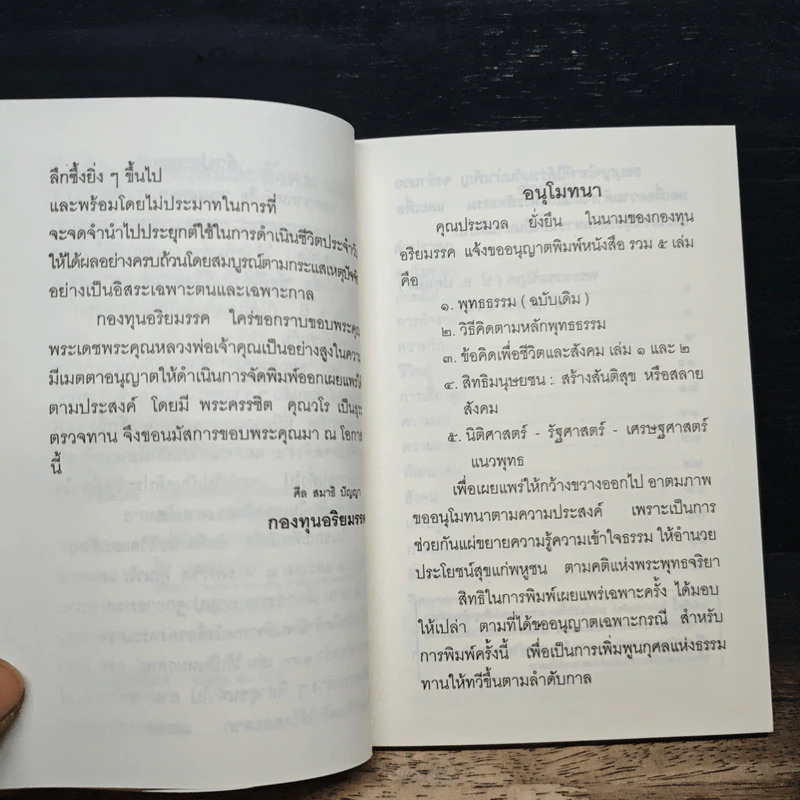 ลึกซึ้งยิ่ง ๆ ขึ้นไป
และพร้อมโดยไม่ประมาทในการที่
จะจดจำนำไปประยุกต์ใช้ในการดำเนินชีวิตประจำวัน
ให้ได้ผลอย่างครบถ้วนโดยสมบูรณ์ตามกระแสเหตุปัจจัย
อย่างเป็นอิสระเฉพาะตนและเฉพาะกาล
กองทุนอริยมรรค ใคร่ขอกราบขอบพระคุณ
พระเดชพระคุณหลวงพ่อเจ้าคุณเป็นอย่างสูงในความ
มีเมตตาอนุญาตให้ดำเนินการจัดพิมพ์ออกเผยแพร่ได้
ตามประสงค์ โดยมี พระครรชิต คุณวโร เป็นธุระ
ตรวจทาน จึงขอนมัสการขอบพระคุณมา ณ โอกาส
นี้
ศีล สมาธิ ปัญญา
กองทุนอริยมรรค
อนุโมทนา
คุณประมวล ยั่งยืน ในนามของกองทุน
อริยมรรค แจ้งขออนุญาตพิมพ์หนังสือ รวม ๕ เล่ม
คือ
๑. พุทธธรรม ( ฉบับเดิม )
๒. วิธีคิดตามหลักพุทธธรรม
๓. ข้อคิดเพื่อชีวิตและสังคม เล่ม ๑ และ ๒
๔. สิทธิมนุษยชน : สร้างสันติสุข หรือสลาย
สังคม
๕. นิติศาสตร์ - รัฐศาสตร์ - เศรษฐศาสตร์
แนวพุทธ
เพื่อเผยแพร่ให้กว้างขวางออกไป อาตมภาพ
ขออนุโมทนาตามความประสงค์ เพราะเป็นการ
ช่วยกันแผ่ขยายความรู้ความเข้าใจธรรม ให้อำนวย
ประโยชน์สุขแก่พหูชน ตามคติแห่งพระพุทธจริยา
สิทธิในการพิมพ์เผยแพร่เฉพาะครั้ง ได้มอบ
ให้เปล่า ตามที่ได้ขออนุญาตเฉพาะกรณี สำหรับ
การพิมพ์ครั้งนี้ เพื่อเป็นการเพิ่มพูนกุศลแห่งธรรม
ทานให้ทวีขึ้นตามลำดับกาล